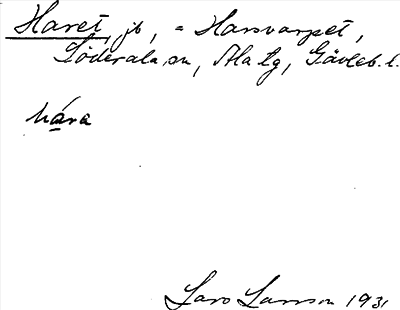 Haret, jb, = Harsvarpet,
Söderala sn, Ala tg, Gävleb. l.
hára
Lars Larsson 1931